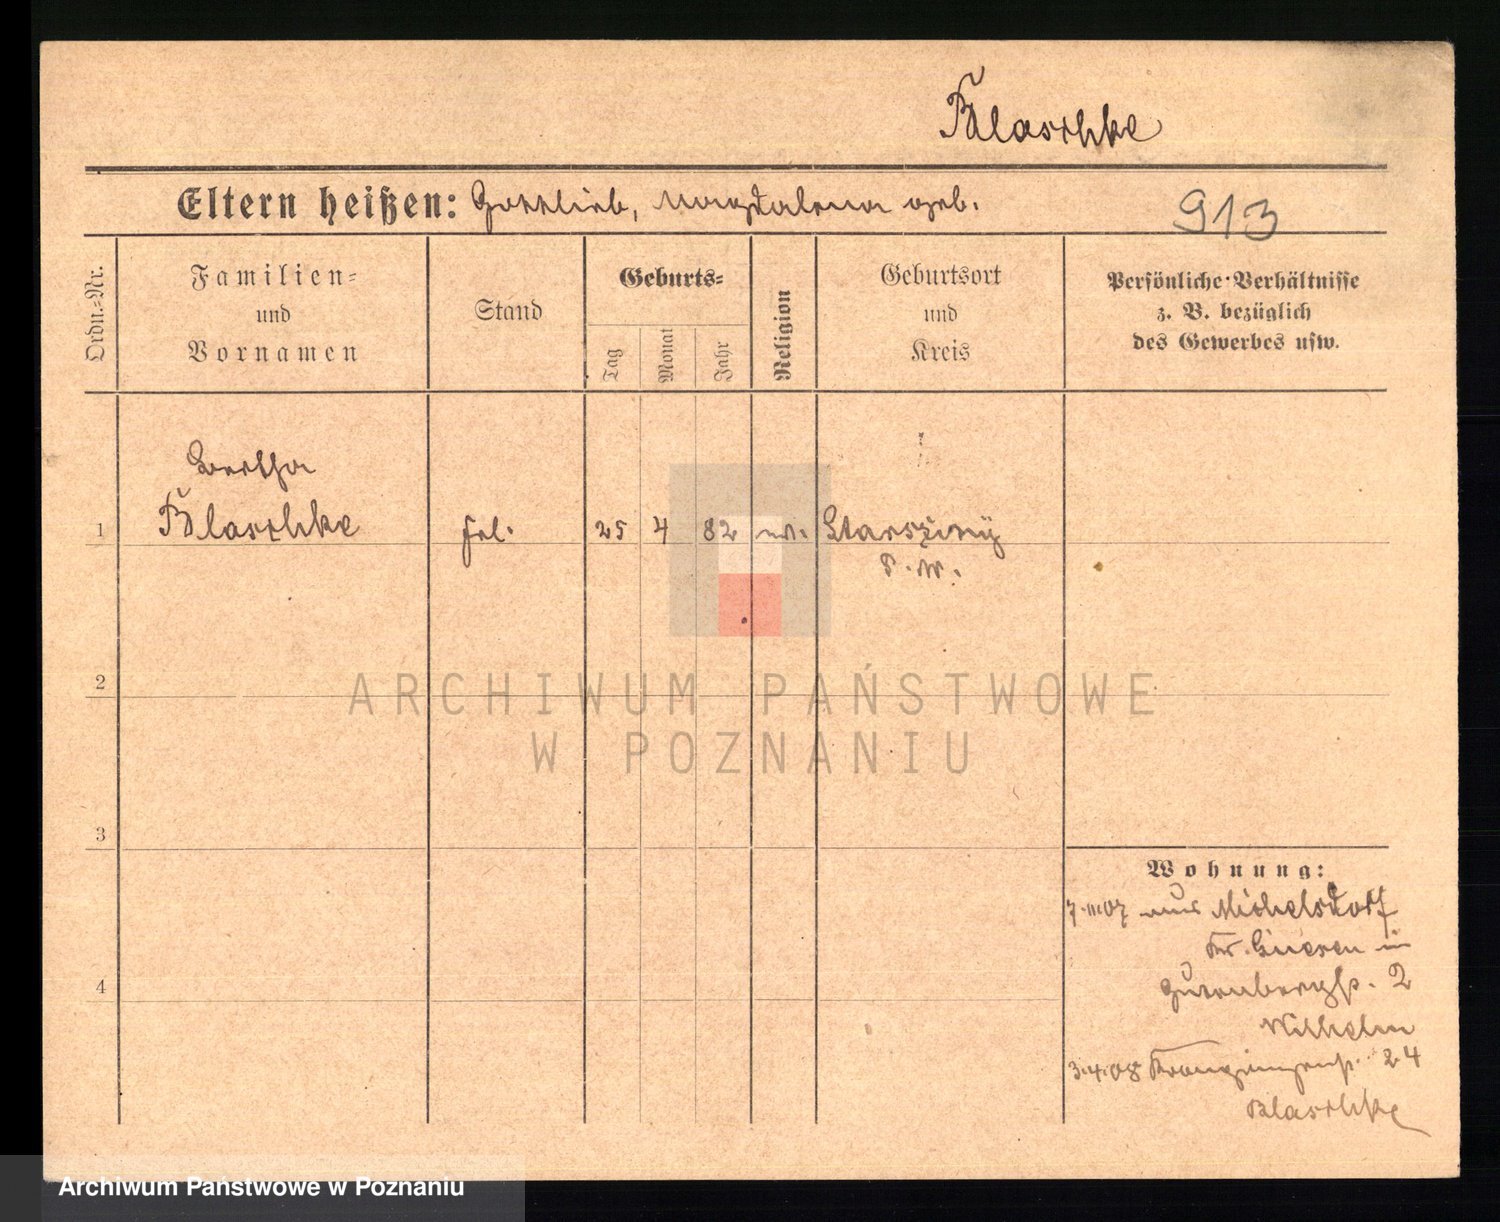 Blaschke
Eltern heißen: Gottlieb, Magdalena geb.
913
Ordn.-Nr.
Familien-
und
Vornamen
Stand
Geburts-
Tag
Monat
Jahr
Religion
Geburtsort
und
Kreis
Persönliche Verhältnisse
z. B. bezüglich
des Gewerbes usw.
Bertha
1 Blaschke Frl. 25 4 82 ev.
2
3
4
ARCHIWUM PAŃSTWOWE
W POZNANIU
Wohnung:
7.11.07 aus Michelsdorf
Kr. Gnesen in
Gutenbergstr. 2
Wilhelm
3.4.08 24
Blaschke
Archiwum Państwowe w Poznaniu